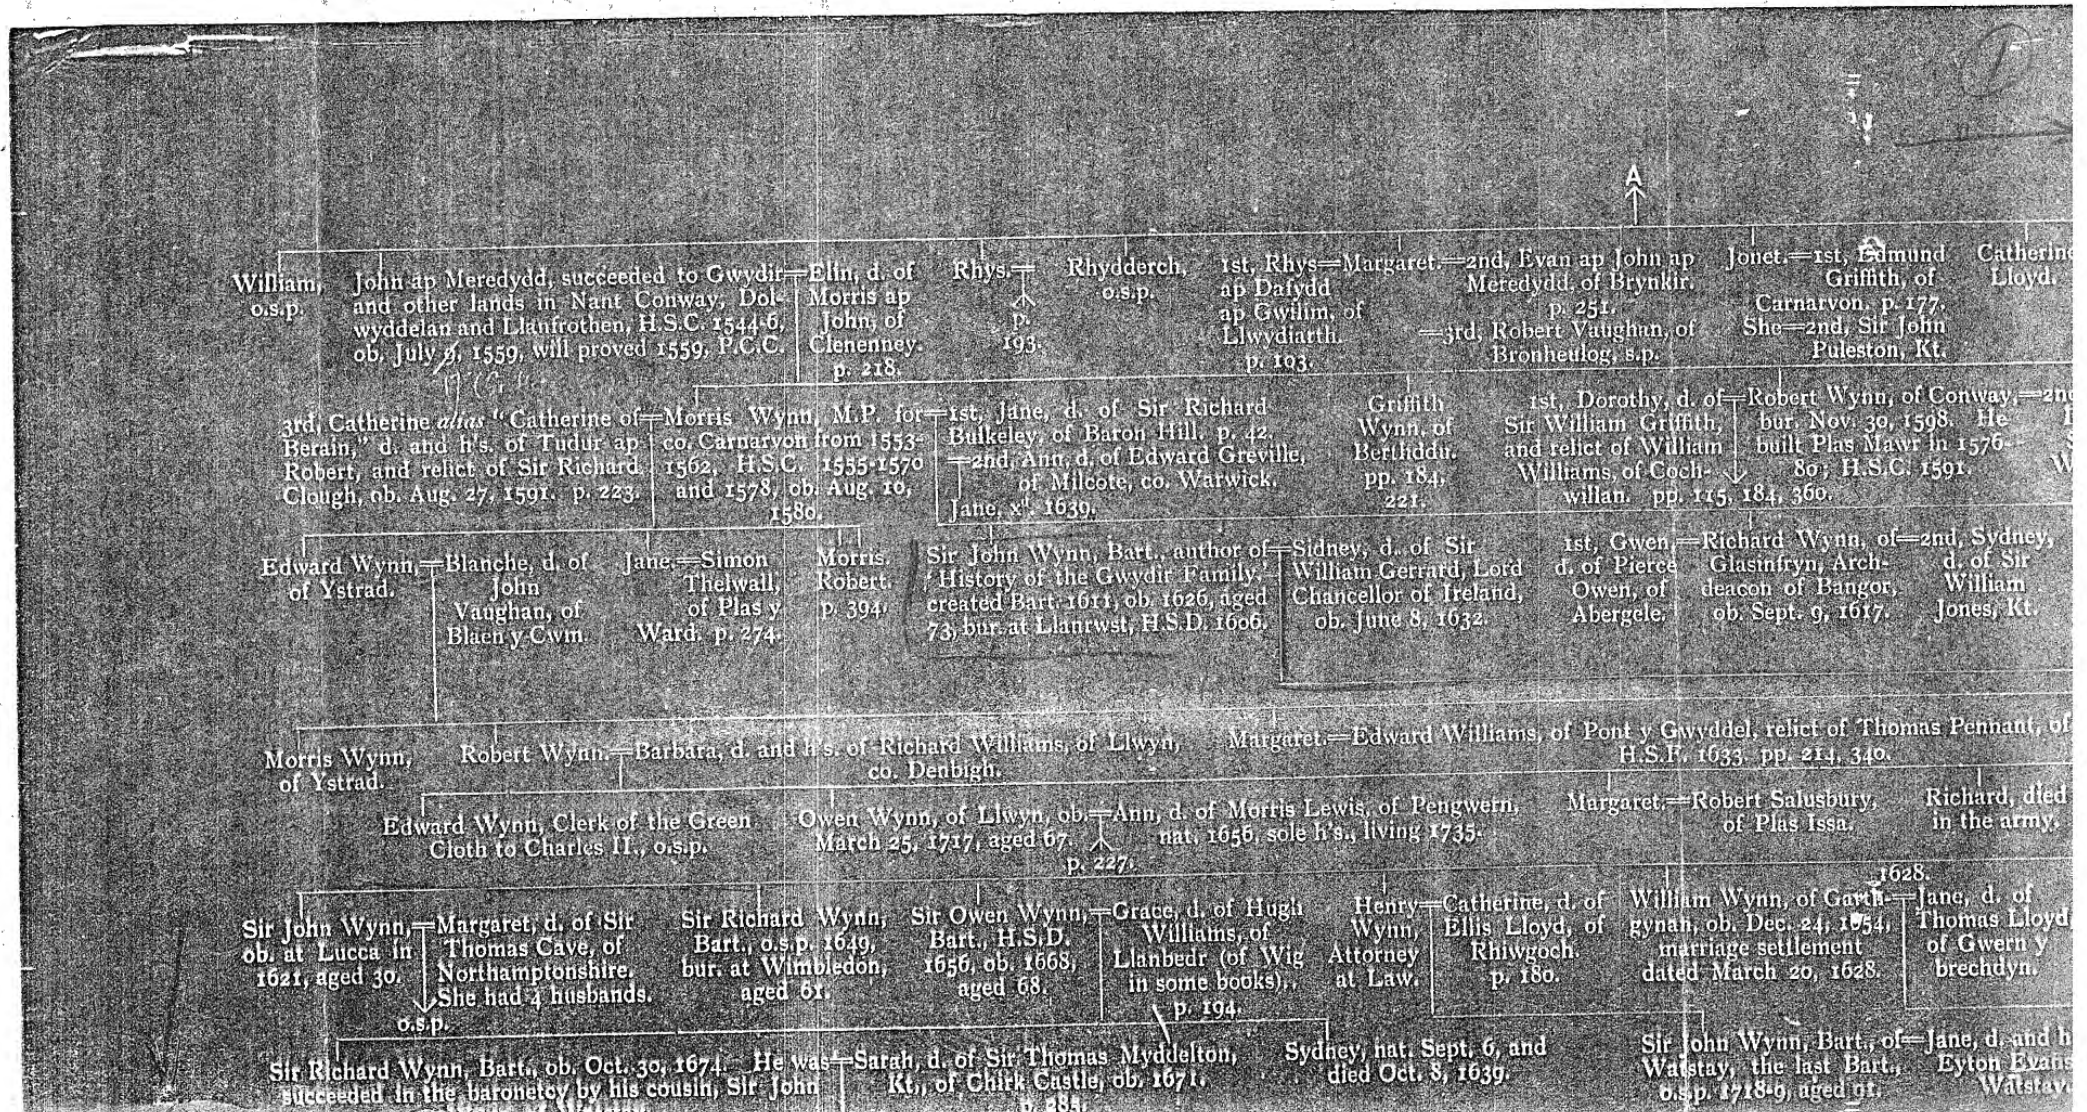 1
A
William,
o.s.p.
John ap Meredydd, succeeded to Gwydir=
and other lands in Nant Conway, Dol-
wyddelan and Llanfrothen, H.S.C. 1544-6,
ob. July 9, 1559, will proved 1559, P.C.C.
Elin, d. of
Morris ap
John, of
Clenenney.
p. 218.
Rhys.=
p.
193.
Rhydderch,
o.s.p.
1st, Rhys=Margaret.=2nd, Evan ap John ap
ap Dafydd
ap Gwilim, of
Llwydiarth.
p. 193.
Meredydd, of Brynkir.
p. 251.
=3rd, Robert Vaughan, of
Bronheulog, s.p.
Jonet.=1st, Edmund
Griffith, of
Carnarvon. p. 177.
She=2nd, Sir John
Puleston, Kt.
Catherine
Lloyd.
3rd, Catherine alias "Catherine of=
Berain," d. and h's. of Tudur ap
Robert, and relict of Sir Richard
Clough, ob. Aug. 27, 1591. p. 223.
Morris Wynn, M.P. for=
co. Carnarvon from 1553-
1562, H.S.C. 1555-1570
and 1578, ob. Aug. 10,
1580.
1st, Jane, d. of Sir Richard
Bulkeley, of Baron Hill. p. 42.
=2nd, Ann, d. of Edward Greville,
of Milcote, co. Warwick.
Jane, x". 1639.
Griffith
Wynn, of
Berthddu.
pp. 184,
221.
1st, Dorothy, d. of=
Sir William Griffith,
and relict of William
Williams, of Coch-
willan. pp. 115, 184, 360.
Robert Wynn, of Conway,=2nd
bur. Nov. 30, 1598. He
built Plas Mawr in 1576-
80; H.S.C. 1591.
Edward Wynn,=
of Ystrad.
Blanche, d. of
John
Vaughan, of
Blaen y Cwm
Jane.=Simon
Thelwall,
of Plas y
Ward. p. 274.
Morris.
Robert.
p. 394.
Sir John Wynn, Bart., author of=
'History of the Gwydir Family.'
created Bart. 1611, ob. 1626, aged
73, bur. at Llanrwst, H.S.D. 1606.
Sidney, d. of Sir
William Gerrard, Lord
Chancellor of Ireland,
ob. June 8, 1632.
1st, Gwen,=
d. of Pierce
Owen, of
Abergele.
Richard Wynn, of=
Glasinfryn, Arch-
deacon of Bangor,
ob. Sept. 9, 1617.
2nd, Sydney,
d. of Sir
William
Jones, Kt.
Morris Wynn,
of Ystrad.
Robert Wynn.=Barbara, d. and h's. of Richard Williams, of Llwyn,
co. Denbigh.
Margaret.=Edward Williams, of Pont y Gwyddel, relict of Thomas Pennant, of
H.S.F. 1633. pp. 214, 340.
Edward Wynn, Clerk of the Green
Cloth to Charles II., o.s.p.
Owen Wynn, of Llwyn, ob.=Ann, d. of Morris Lewis, of Pengwern,
March 25, 1717, aged 67.
nat. 1656, sole h's., living 1735.
p. 227.
Margaret.=Robert Salusbury,
of Plas Issa.
Richard, died
in the army.
Sir John Wynn,=
ob. at Lucca in
1621, aged 30.
o.s.p.
Margaret, d. of Sir
Thomas Cave, of
Northamptonshire.
She had 4 husbands.
Sir Richard Wynn,
Bart., o.s.p. 1649,
bur. at Wimbledon,
aged 61.
Sir Owen Wynn,=
Bart., H.S.D.
1656, ob. 1668,
aged 68.
Grace, d. of Hugh
Williams, of
Llanbedr (of Wig
in some books).
p. 194.
Henry=
Wynn,
Attorney
at Law.
Catherine, d. of
Ellis Lloyd, of
Rhiwgoch.
p. 180.
1628.
William Wynn, of Garth-=
gynan, ob. Dec. 24, 1654,
marriage settlement
dated March 20, 1628.
Jane, d. of
Thomas Lloyd,
of Gwern y
brechdyn.
Sir Richard Wynn, Bart., ob. Oct. 30, 1674. He was=
succeeded in the baronetcy by his cousin, Sir John
Sarah, d. of Sir Thomas Myddelton,
Kt., of Chirk Castle, ob. 1671.
p. 285.
Sydney, nat. Sept. 6, and
died Oct. 8, 1639.
Sir John Wynn, Bart., of=
Watstay, the last Bart.,
o.s.p. 1718-9, aged 91.
Jane, d. and h
Eyton Evans
Watstay.